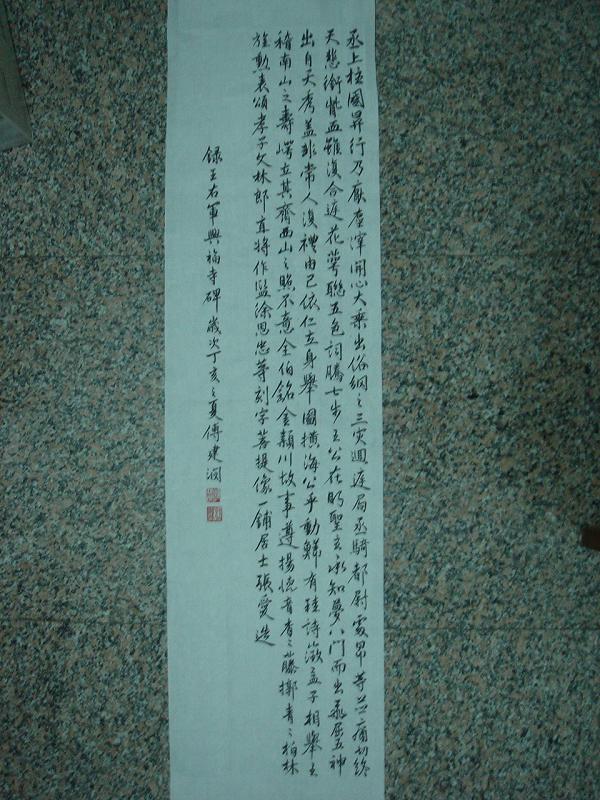 丞上柱國昇行乃厥產渾開心大乘出俗綱之三灾迴遑局丞騎都尉處昂等並痛切終
天悲銜躃血雖復合遑花萼聯五色詞騰七步立公在明聖玄承知夢八門而出飛屈五神
出自天秀蓋非常人復禮由己依仁立身舉國橫海公乎動鄰有珪詩激孟子相舉之
稽南山之壽崿立其齊西山之照不意全伯銘金顏川故事遵揚德音者之藤擲青之柏林
旌勳表頌孝子文林郎直將作監徐思忠等刻字菩提像一鋪居士張愛造
錄王右軍興福寺碑 歲次丁亥之夏傅建潤